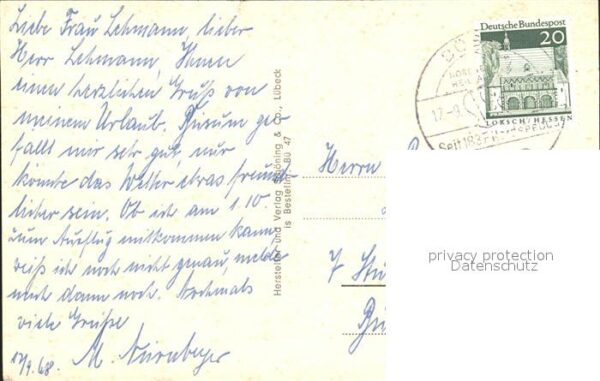 Liebe Frau Lehmann, lieber
Herr Lehmann, Ihnen
einen herzlichen Gruß von
meinem Urlaub. Büsum ge-
fällt mir sehr gut, nur
könnte das Wetter etwas freund-
licher sein. Ob ich am 1.10.
zum Ausflug mitkommen kann,
weiß ich noch nicht genau, melde
mich dann noch. Nochmals
viele Grüße
17/9.68 M. Nürnberger
Hersteller und Verlag Schöning & Co., Lübeck
Bestellnr. Bü 47
Deutsche Bundespost
20
LORSCH/HESSEN
17.-9.
SEIT 1837
Herrn
7
privacy protection
Datenschutz